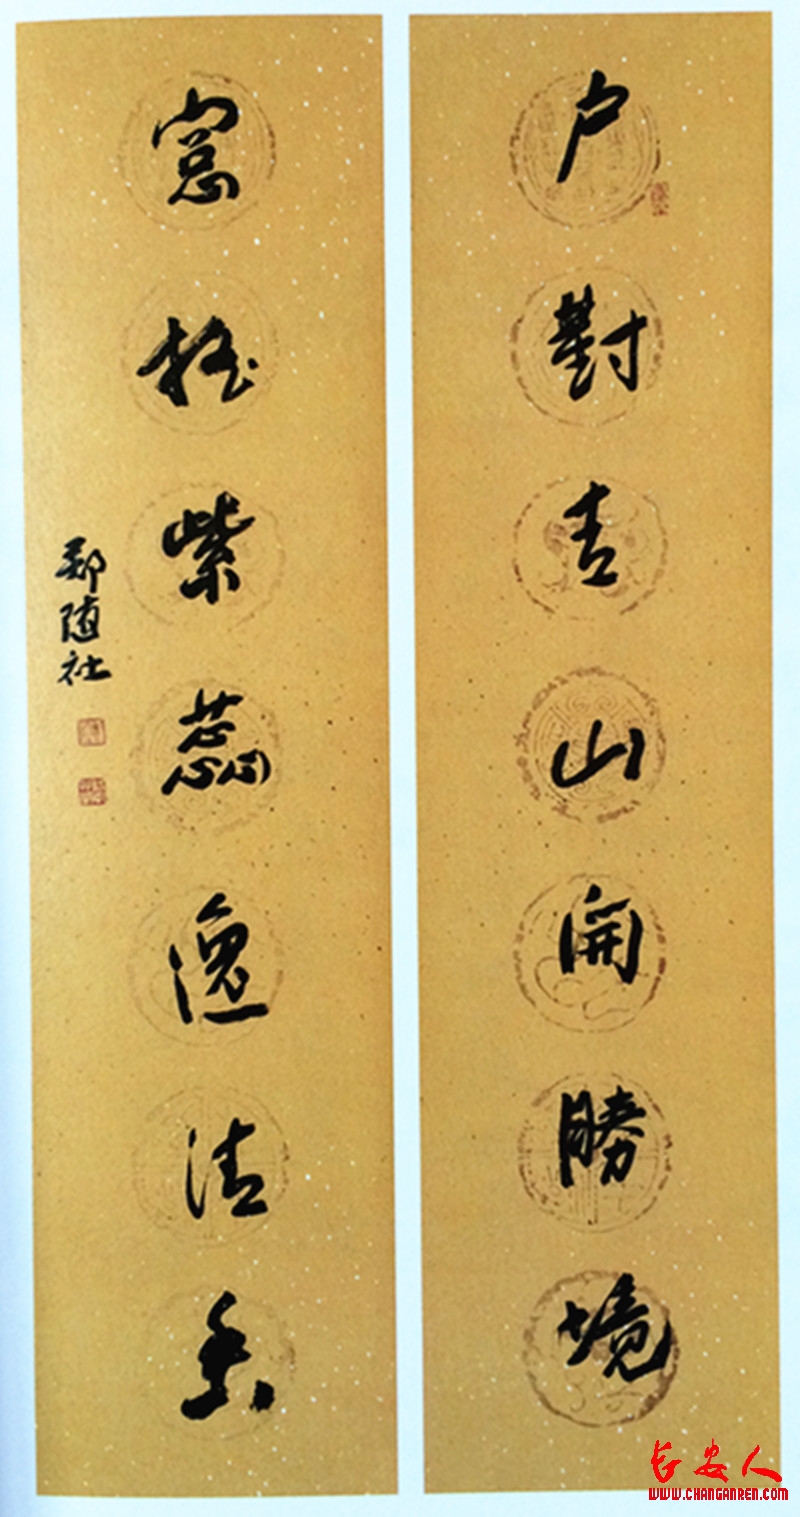 户對青山開勝境
窻招紫蕊逸清香
郑随社
长安人
WWW.CHANGANREN.COM